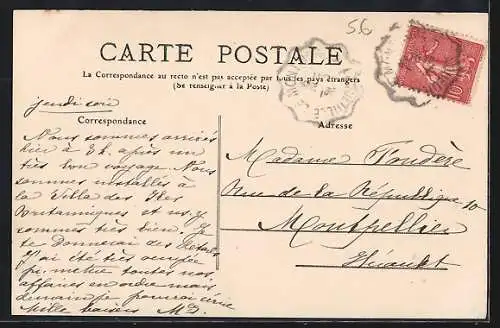 56
CARTE POSTALE
La Correspondance au recto n'est pas acceptée par tous les pays étrangers
(Se renseigner à la Poste)
jeudi soir
Correspondance
Adresse
Nous sommes arrivés
hier à 2h. après un
très bon voyage. Nous
sommes installés à
la Villa des Iles
Britanniques et ns y
sommes très bien. Je
te donnerai des détails
J'ai été très occupée
pr mettre toutes nos
affaires en ordre mais
demain je pourrai écrire
Mille baisers M.D.
Madame Foudère
Rue de la République 10
Montpellier
Hérault
10